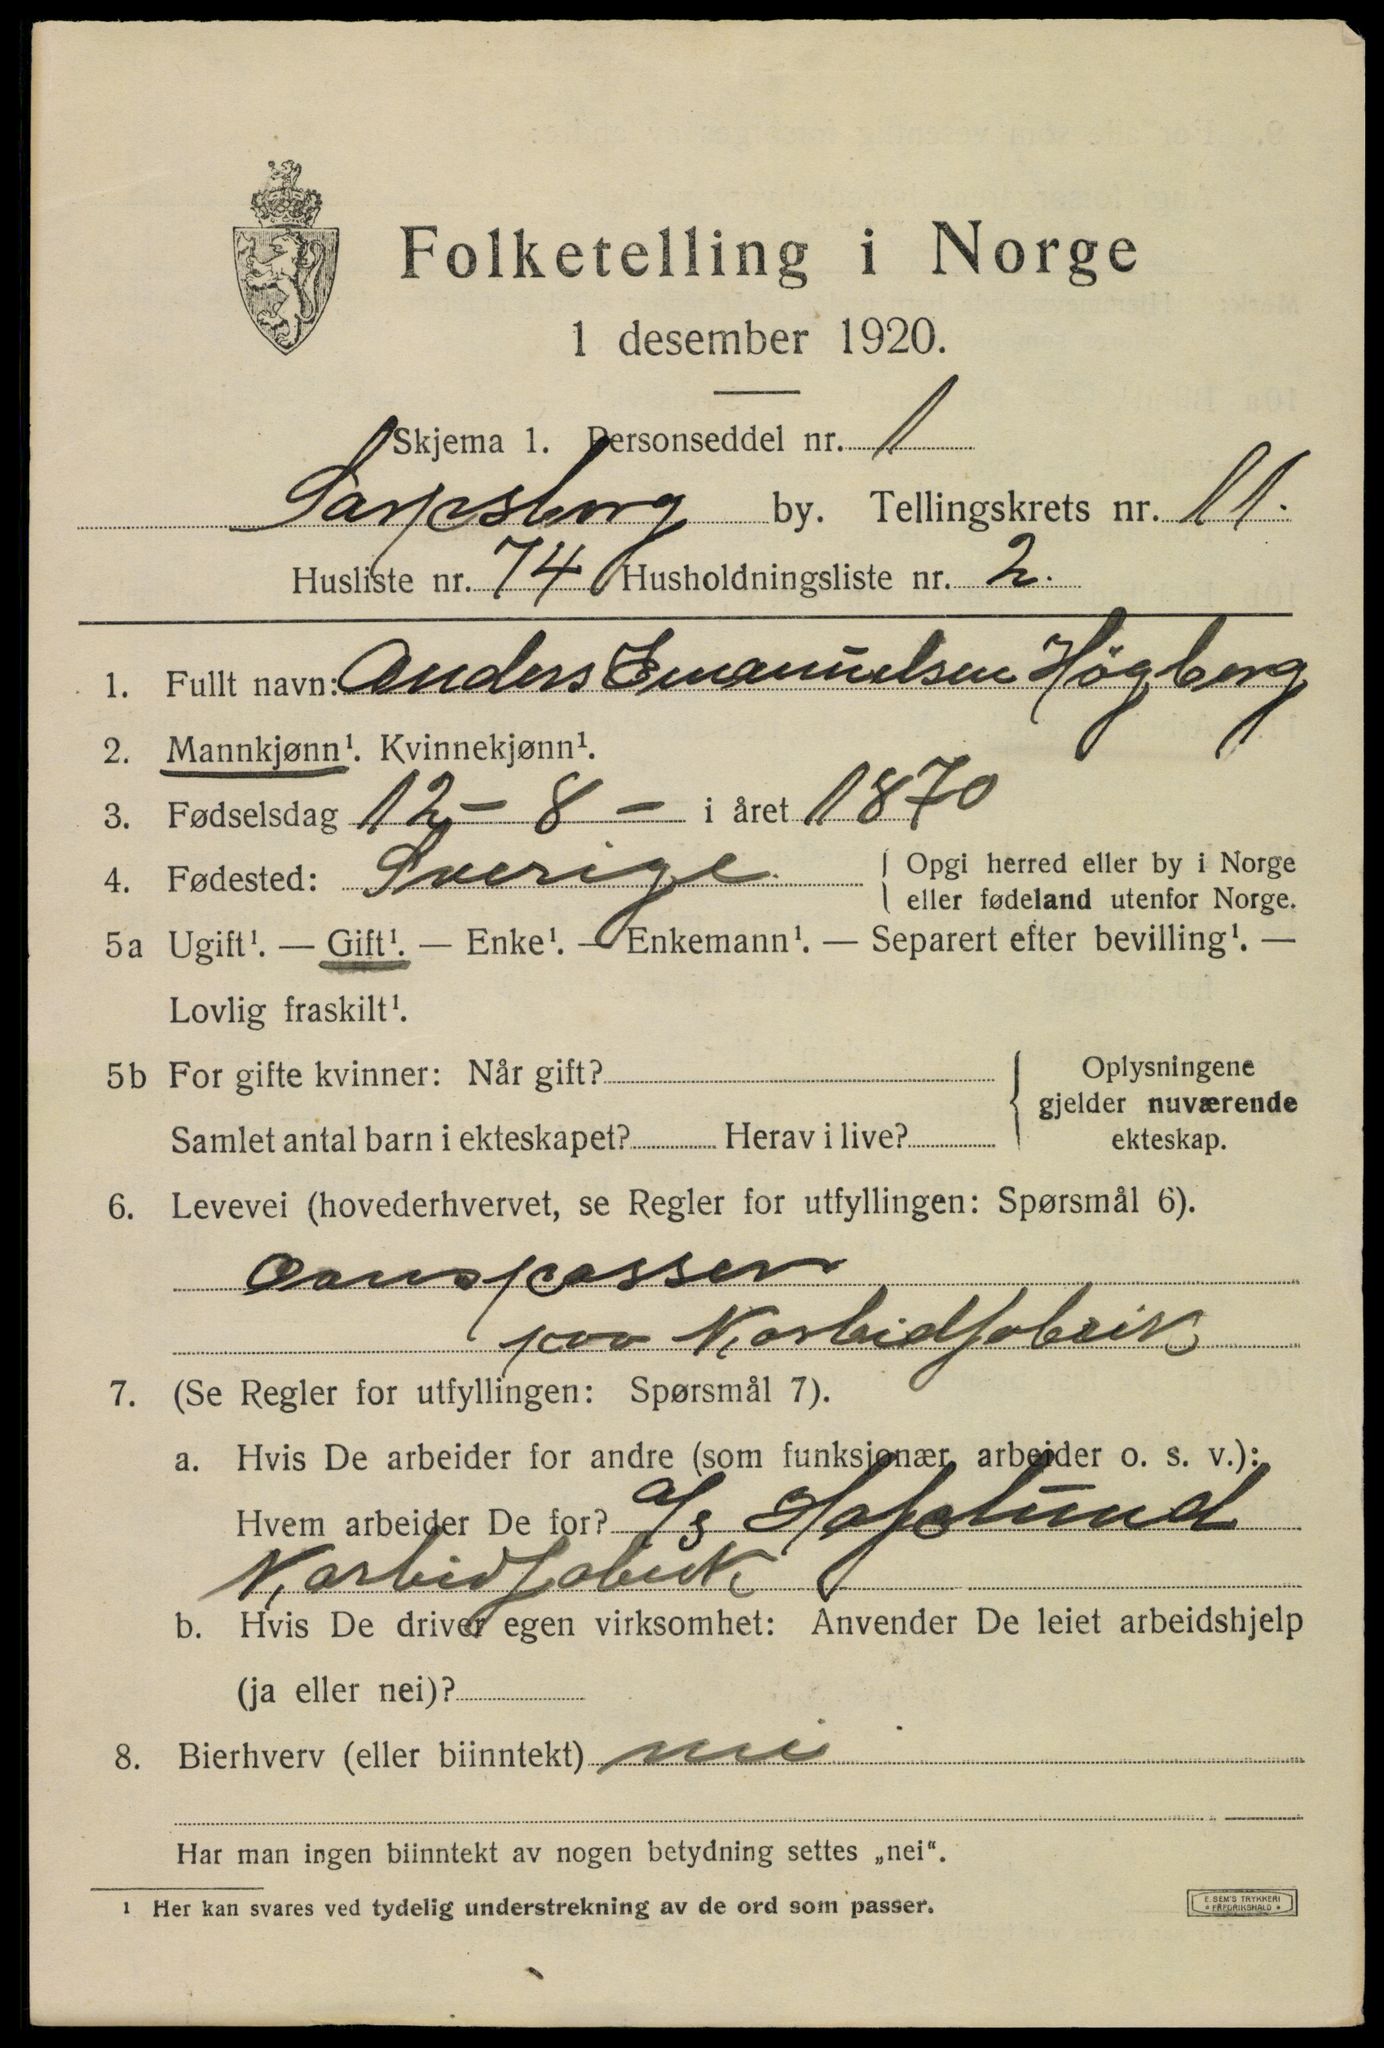 Folketelling i Norge
1 desember 1920.
Skjema 1. Personseddel nr. 1
Sarpsborg by. Tellingskrets nr. 11.
Husliste nr. 74 Husholdningsliste nr. 2.
1. Fullt navn: Anders Emanuelsen Högberg
2. Mannkjønn¹. Kvinnekjønn¹.
3. Fødselsdag 12 - 8 - i året 1870
4. Fødested: Sverige. { Opgi herred eller by i Norge
eller fødeland utenfor Norge.
5a Ugift¹. — Gift¹. — Enke¹. — Enkemann¹. — Separert efter bevilling¹. —
Lovlig fraskilt¹.
5b For gifte kvinner: Når gift? { Oplysningene
gjelder nuværende
Samlet antal barn i ekteskapet? Herav i live? ekteskap.
6. Levevei (hovederhvervet, se Regler for utfyllingen: Spørsmål 6).
Ovnspasser
paa Karbidfabrik
7. (Se Regler for utfyllingen: Spørsmål 7).
a. Hvis De arbeider for andre (som funksjonær, arbeider o. s. v.):
Hvem arbeider De for? a/s Hafslund
Karbidfabrik
b. Hvis De driver egen virksomhet: Anvender De leiet arbeidshjelp
(ja eller nei)?
8. Bierhverv (eller biinntekt) nei
Har man ingen biinntekt av nogen betydning settes „nei“.
¹ Her kan svares ved tydelig understrekning av de ord som passer.
E. SEM'S TRYKKERI
* FREDRIKSHALD *